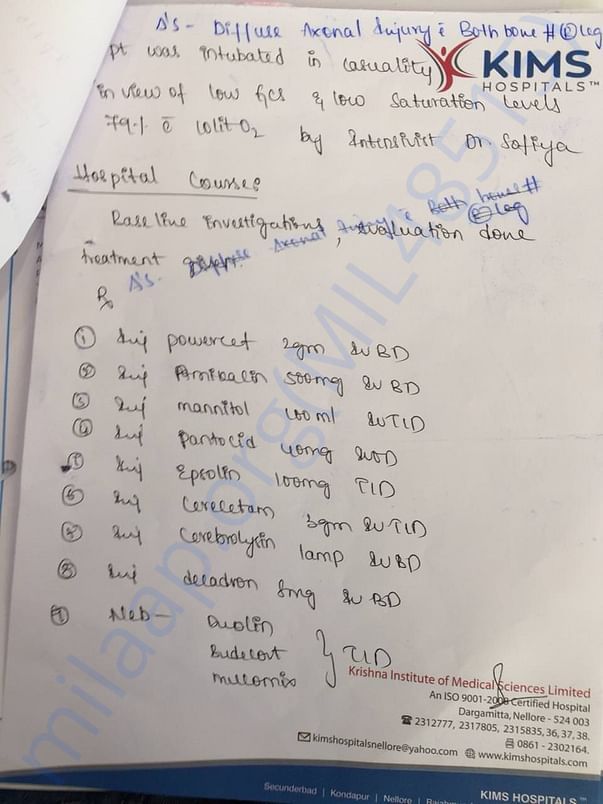 Δ's - Diffuse Axonal Injury c̄ Both bone # Ⓡ leg
pt was intubated in casuality
KIMS
HOSPITALS™
in view of low GCS & low Saturation levels
79% c̄ 10lit O2 by Intensivist Dr Safiya
Hospital Course:
Base line investigations, evaluation done
Axonal Injury c̄ Both bone # Ⓡ leg
treatment
Δ's.
Rx
① Inj powercef 2gm IV BD
② Inj Amibacin 500mg IV BD
③ Inj mannitol 100ml IV TID
④ Inj pantocid 40mg IV OD
⑤ Inj Epsolin 100mg TID
⑥ Inj Cerecetam 3gm IV TID
⑦ Inj Cerebrolysin 1amp IV BD
⑧ Inj decadron 8mg IV BD
⑨ Neb - Duolin
Budecort } TID
mucomix
Krishna Institute of Medical Sciences Limited
An ISO 9001-2008 Certified Hospital
Dargamitta, Nellore - 524 003
2312777, 2317805, 2315835, 36, 37, 38.
0861 - 2302164.
kimshospitalsnellore@yahoo.com www.kimshospitals.com
KIMS HOSPITALS™
Secunderbad | Kondapur | Nellore |
milaap.org(MIL485